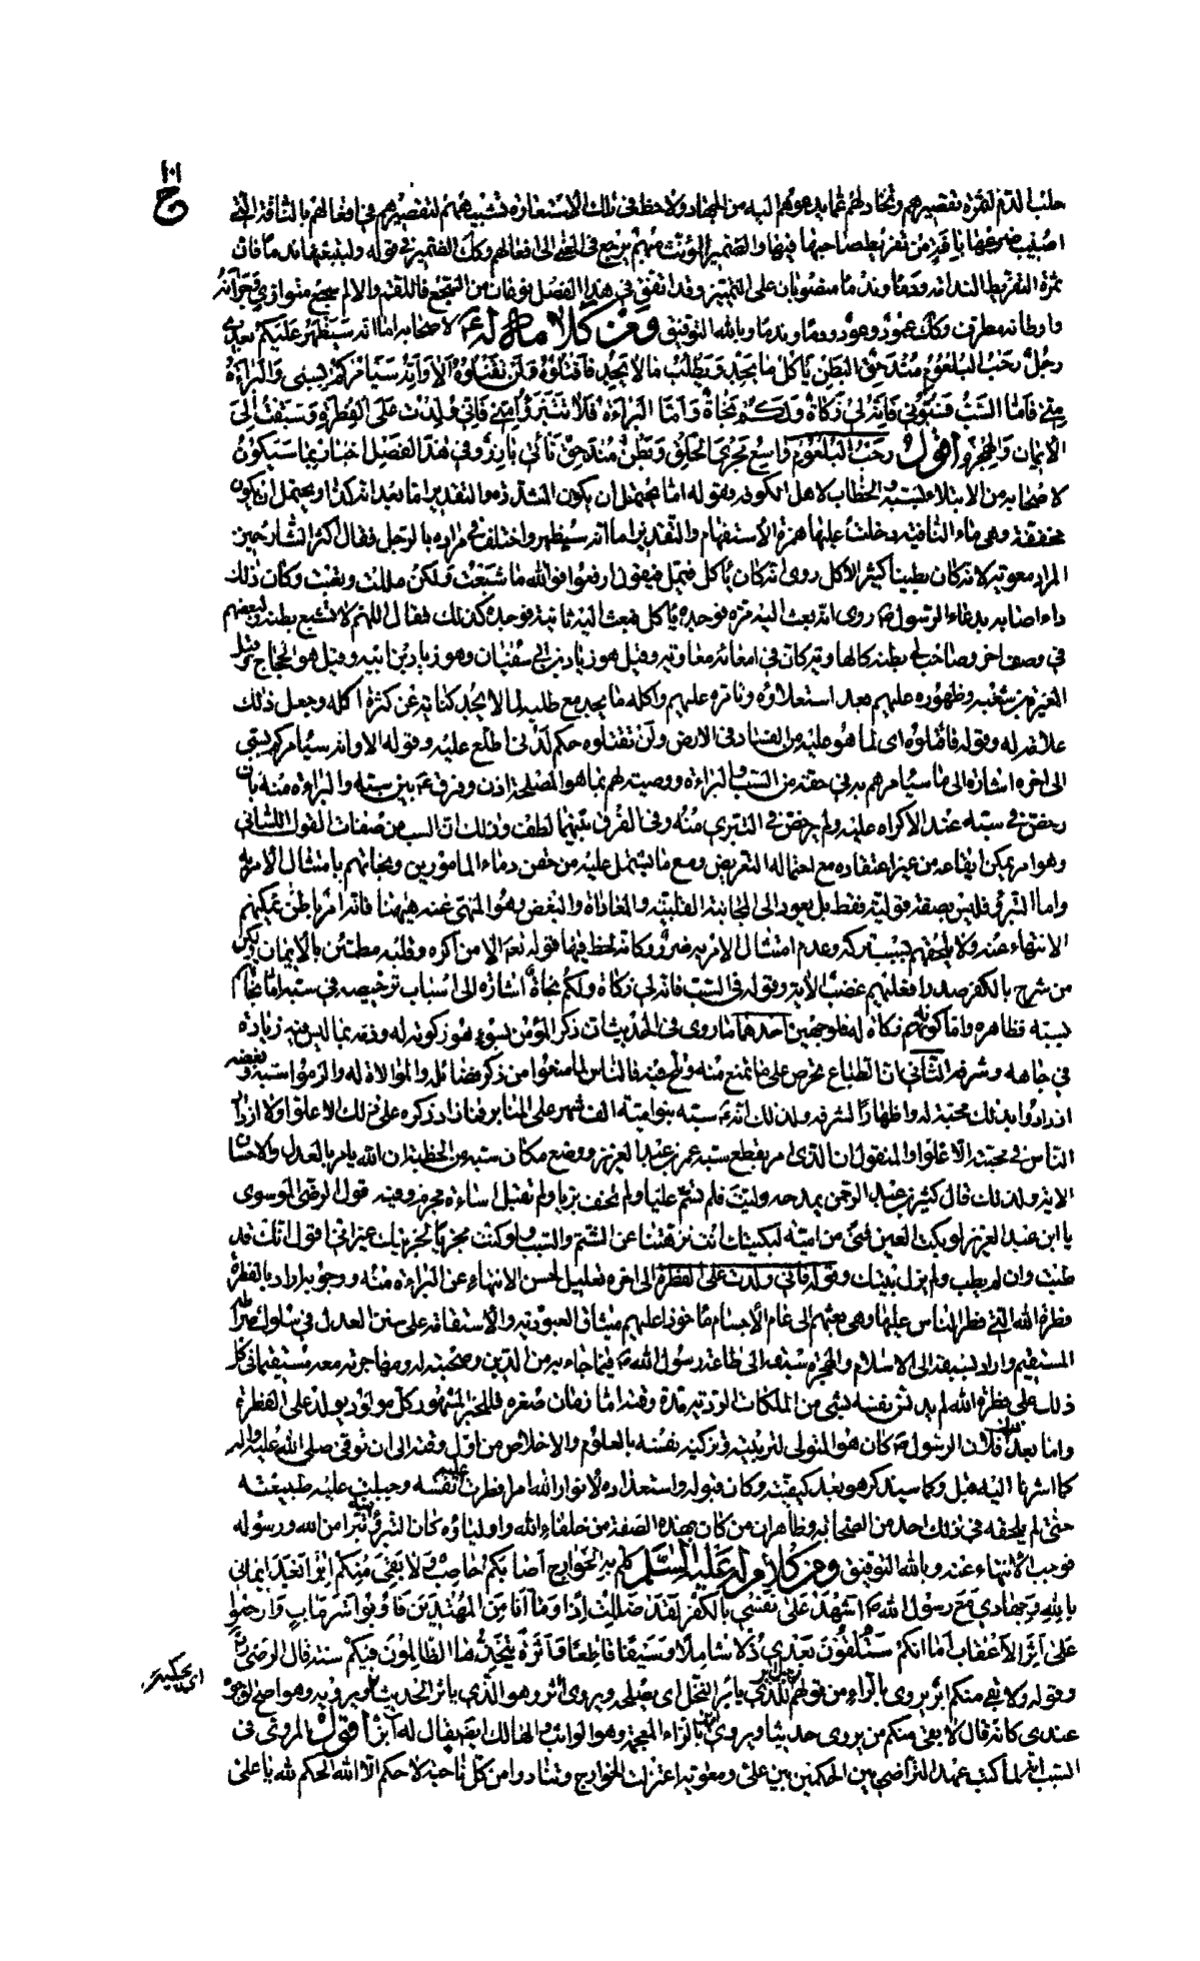 ١٠١
ج
جلب الدم لثمرة تقصيرهم وتخاذلهم عما يدعوهم اليه من الجهاد ولاحظ في ذلك الاستعارة تشبيههم لتقصيرهم في افعالهم بالناقة التي
اصيب ضرعها بآفة من تفريط صاحبها فيها والضمير المؤنث منهم يرجع في الى افعالهم وكذلك الضمير في قوله وليتبعنها ندما فان
ثمرة التفريط الندامة ودما وندما منصوبان على التمييز وقد اتفق في هذا الفصل نوعان من السجع فاللقم والالم سجع متوازي وجرآنه
واوطانه مطرف وكذلك عمود وعود ودما وندما وبالله التوفيق ومن كلام له ع لاصحابه اما انه سيظهر عليكم بعدي
رجل رحب البلعوم مندحق البطن يأكل ما يجد ويطلب ما لا يجد فاقتلوه ولن تقتلوه الا وانه سيأمركم بسبي والبراءة
مني فاما السب فسبوني فانه لي زكاة ولكم نجاة واما البراءة فلا تتبرؤا مني فاني ولدت على الفطرة وسبقت الى
الايمان والهجرة اقول رحب البلعوم واسع مجرى الحلق وبطن مندحق ناتئ بارز وفي هذا الفصل اخبار بما سيكون
لاصحابه من الابتلاء بسبه والخطاب لاهل الكوفة وقوله اما يحتمل ان يكون المشددة والتقدير اما بعد انه كذا ويحتمل ان يكون
مخففة وهي ما النافية دخلت عليها همزة الاستفهام والتقدير اما انه سيظهر واختلف في مراده بالرجل فقال اكثر الشارحين
المراد معوية لانه كان بطينا كثير الاكل روى انه كان يأكل فيمل فيقول ارفعوا فوالله ما شبعت ولكن مللت وتعبت وكان ذلك
داء اصابه بدعاء الرسول ص روى انه بعث اليه مرة فوجده يأكل فبعث اليه ثانية فوجده كذلك فقال اللهم لا تشبع بطنه ولبعضهم
في وصف اخر وصاحب لي بطنه كالهاوية كان في امعائه معاوية وقيل هو زياد بن ابي سفيان وهو زياد بن ابيه وقيل هو الحجاج وقيل
المغيرة بن شعبة وظهوره عليهم بعد استعلاؤه وتامره عليهم واكله ما يجد مع طلبه لما لا يجد كناية عن كثرة اكله وجعل ذلك
علامة له وقوله فاقتلوه اي لما هو عليه من الفساد في الارض ولن تقتلوه حكم لدني اطلع عليه وقوله الا وانه سيأمركم بسبي
الى اخره اشارة الى ما سيأمرهم به في حقه من السب والبراءة ووصيته لهم بما هو المصلحة اذن وفرق ع بين سبه والبراءة منه بان
رخص في سبه عند الاكراه عليه ولم يرخص في التبري منه وفي الفرق بينهما لطف وذلك ان السب من صفات القول اللساني
وهو امر يمكن ايقاعه من غير اعتقاده مع احتماله التعريض ومع ما يشتمل عليه من حقن دماء المامورين ونجاتهم بامتثال الامر به
واما التبرئ فليس بصفة قولية فقط بل يعود الى المجانبة القلبية والمعاداة والبغض وهو المنهى عنه هيهنا فانه امر باطن يمكنهم
الانتهاء عنه ولا يلحقهم بسبب تركه وعدم امتثال الامر به ضرر وكانه لحظ فيها قوله تع الا من اكره وقلبه مطمئن بالايمان ولكن
من شرح بالكفر صدرا فعليهم غضب الاية وقوله في السب فانه لي زكاة ولكم نجاة اشارة الى اسباب ترخيصه في سبه اما نجاتهم
بسبه فظاهرة واما كونه زكاة له فلوجهين احدهما ما روى في الحديث ان ذكر المؤمن بسوء هو زكوة له وذمه بما ليس فيه زيادة
في جاهه وشرفه الثاني ان الطباع تحرص على ما تمنع منه وتلح فيه فالناس لما منعوا من ذكر فضائله والموالاة له والزموا سبه وبغضه
ازدادوا بذلك محبة له واظهارا لشرفه ولذلك انه ع سبه بنو امية الف شهر على المنابر فما زاد ذكره على ذلك الا علوا ولا ازداد
الناس في محبته الا غلوا والمنقول ان الذي امر بقطع سبه عمر بن عبد العزيز ووضع مكان سبه من الخطبة ان الله يامر بالعدل والاحسان
الاية ولذلك قال كثير بن عبد الرحمن يمدحه وليت فلم تشتم عليا ولم تخف بريا ولم تقبل اساءة مجرم وفيه قول الرضي الموسوي
يا ابن عبد العزيز لو بكت العين فتى من امية لبكيتك انت نزهتنا عن الشتم والسب ولو كنت مجزيا لجزيتك غير اني اقول انك قد
طبت وان لم يطب ولم يزك بيتك وقوله فاني ولدت على الفطرة الى اخره تعليل لحسن الانتهاء عن البراءة منه ووجوبه اراد بالفطرة
فطرة الله التي فطر الناس عليها وهي بعثهم الى عالم الاجسام ماخوذا عليهم ميثاق العبودية والاستقامة على سنن العدل في سلوك صراطه
المستقيم واراد بسبقه الى الاسلام والهجرة سبقه الى طاعة رسول الله ص فيما جاء به من الدين وصحبته له ومهاجرته معه مستقيما في كل
ذلك على فطرة الله لم يدنس نفسه بشيء من الملكات الردية مدة وقته اما زمان صغره فللخبر المشهور كل مولود يولد على الفطرة
واما بعده فلان الرسول ص كان هو المتولى لتربيته وتزكية نفسه بالعلوم والاخلاص من اول وقته الى ان توفي صلى الله عليه واله
كما اشرنا اليه قبل وكما سيذكر هو بعد كيفيته وكان قبوله واستعداده لانوار الله امرا فطرت عليه نفسه وجبلت عليه طبيعته
حتى لم يلحقه في ذلك احد من الصحابة وظاهر ان من كان بهذه الصفة من خلفاء الله واوليائه كان التبرؤ منه تبرا من الله ورسوله
فوجب الانتهاء عنه وبالله التوفيق ومن كلام له عليه السلم كلم به الخوارج اصابكم حاصب ولا بقي منكم ابر ابعد ايماني
بالله وجهادي مع رسول الله ص اشهد على نفسي بالكفر لقد ضللت اذا وما انا من المهتدين فاوبوا شر مآب وارجعوا
على اثر الاعقاب اما انكم ستلقون بعدي ذلا شاملا وسيفا قاطعا واثرة يتخذها الظالمون فيكم سنة قال الرضي ره
وقوله ولا بقي منكم ابر يروى بالراء من قولهم رجل ابر للذي يابر النخل اي يصلحه ويروى اثر وهو الذي ياثر الحديث اي يرويه وهو اصح الوجوه
عندي كانه قال لا بقي منكم من يروي حديثا ويروى ابز بالزاء المعجمة وهو الواثب والهالك ايضا يقال له ابز اقول المروي في
السبب انه لما كتب عهد التراضي بين الحكمين بين علي ومعوية اعتزلت الخوارج وتنادوا من كل ناحية لا حكم الا الله الحكم لله يا علي